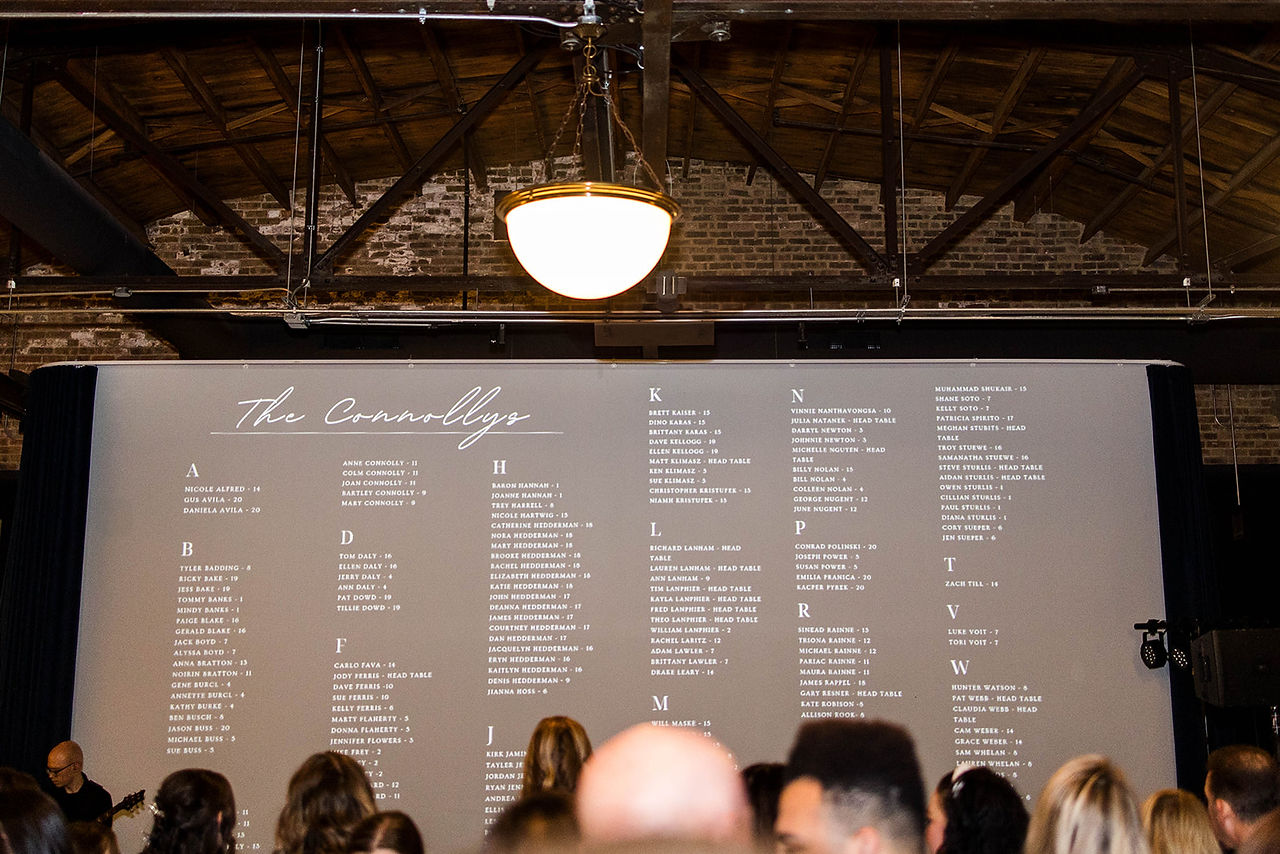 The Connollys
A
NICOLE ALFRED - 14
GUS AVILA - 20
DANIELA AVILA - 20
B
TYLER BADDING - 8
RICKY BAKE - 19
JESS BAKE - 19
TOMMY BANKS - 1
MINDY BANKS - 1
PAIGE BLAKE - 16
GERALD BLAKE - 16
JACK BOYD - 7
ALYSSA BOYD - 7
ANNA BRATTON - 13
NOIRIN BRATTON - 11
GENE BURCL - 4
ANNETTE BURCL - 4
KATHY BURKE - 4
BEN BUSCH - 8
JASON BUSS - 20
MICHAEL BUSS - 5
SUE BUSS - 5
- 11
- 11
- 13
ANNE CONNOLLY - 11
COLM CONNOLLY - 11
JOAN CONNOLLY - 11
BARTLEY CONNOLLY - 9
MARY CONNOLLY - 9
D
TOM DALY - 16
ELLEN DALY - 16
JERRY DALY - 4
ANN DALY - 4
PAT DOWD - 19
TILLIE DOWD - 19
F
CARLO FAVA - 14
JODY FERRIS - HEAD TABLE
DAVE FERRIS - 10
SUE FERRIS - 10
KELLY FERRIS - 6
MARTY FLAHERTY - 3
DONNA FLAHERTY - 3
JENNIFER FLOWERS - 3
FREY - 2
- 2
- 12
- 11
H
BARON HANNAH - 1
JOANNE HANNAH - 1
TREY HARRELL - 8
NICOLE HARTWIG - 15
CATHERINE HEDDERMAN - 18
NORA HEDDERMAN - 18
MARY HEDDERMAN - 18
BROOKE HEDDERMAN - 18
RACHEL HEDDERMAN - 18
ELIZABETH HEDDERMAN - 18
KATIE HEDDERMAN - 18
JOHN HEDDERMAN - 17
DEANNA HEDDERMAN - 17
JAMES HEDDERMAN - 17
COURTNEY HEDDERMAN - 17
DAN HEDDERMAN - 17
JACQUELYN HEDDERMAN - 16
ERYN HEDDERMAN - 16
KAITLYN HEDDERMAN - 16
DENIS HEDDERMAN - 9
JIANNA HOSS - 6
J
KIRK
TAYLER
JORDAN
RYAN
K
BRETT KAISER - 15
DINO KARAS - 15
BRITTANY KARAS - 15
DAVE KELLOGG - 19
ELLEN KELLOGG - 19
MATT KLIMASZ - HEAD TABLE
KEN KLIMASZ - 3
SUE KLIMASZ - 3
CHRISTOPHER KRISTUFEK - 13
NIAMH KRISTUFEK - 13
L
RICHARD LANHAM - HEAD
TABLE
LAUREN LANHAM - HEAD TABLE
ANN LANHAM - 9
TIM LANPHIER - HEAD TABLE
KAYLA LANPHIER - HEAD TABLE
FRED LANPHIER - HEAD TABLE
THEO LANPHIER - HEAD TABLE
WILLIAM LANPHIER - 2
RACHEL LARITZ - 12
ADAM LAWLER - 7
BRITTANY LAWLER - 7
DRAKE LEARY - 14
M
WILL MASKE - 15
N
VINNIE NANTHAVONGSA - 10
JULIA NATANEK - HEAD TABLE
DARRYL NEWTON - 3
JOHNNIE NEWTON - 3
MICHELLE NGUYEN - HEAD
TABLE
BILLY NOLAN - 15
BILL NOLAN - 4
COLLEEN NOLAN - 4
GEORGE NUGENT - 12
JUNE NUGENT - 12
P
CONRAD POLINSKI - 20
JOSEPH POWER - 5
SUSAN POWER - 5
EMILIA PRANICA - 20
KACPER PYREK - 20
R
SINEAD RAINNE - 13
TRIONA RAINNE - 12
MICHAEL RAINNE - 12
PARIAC RAINNE - 11
MAURA RAINNE - 11
JAMES RAPPEL - 18
GARY RESNER - HEAD TABLE
KATE ROBISON - 8
ALLISON ROOK - 8
MUHAMMAD SHUKAIR - 15
SHANE SOTO - 7
KELLY SOTO - 7
PATRICIA SPIRITO - 17
MEGHAN STUBITS - HEAD
TABLE
TROY STUEWE - 16
SAMANATHA STUEWE - 16
STEVE STURLIS - HEAD TABLE
AIDAN STURLIS - HEAD TABLE
OWEN STURLIS - 1
CILLIAN STURLIS - 1
PAUL STURLIS - 1
DIANA STURLIS - 1
CORY SUEPER - 6
JEN SUEPER - 6
T
ZACH TILL - 14
V
LUKE VOIT - 7
TORI VOIT - 7
W
HUNTER WATSON - 8
PAT WEBB - HEAD TABLE
CLAUDIA WEBB - HEAD
TABLE
CAM WEBER - 14
GRACE WEBER - 14
SAM WHELAN - 8
LAUREN WHELAN - 8